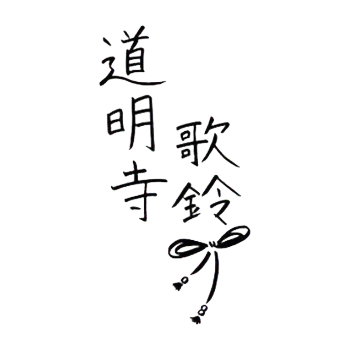 道明寺
歌鈴